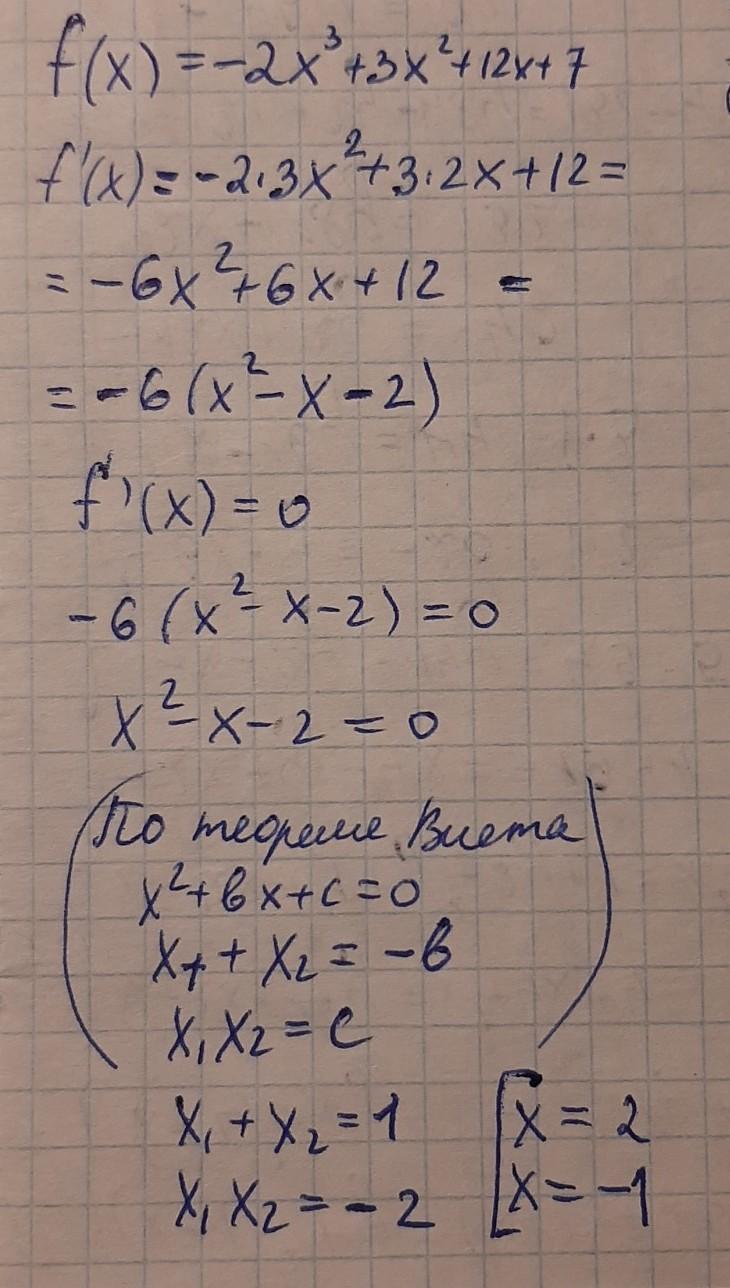 f(x) = -2x³+3x²+12x+7
f'(x) = -2·3x²+3·2x+12 =
= -6x²+6x+12 =
= -6(x²-x-2)
f'(x) = 0
-6(x²-x-2) = 0
x²-x-2 = 0
(По теореме Виета)
x²+bx+c=0
x₁+x₂ = -b
x₁x₂ = c
x₁+x₂=1 [x=2
x₁x₂=-2 [x=-1